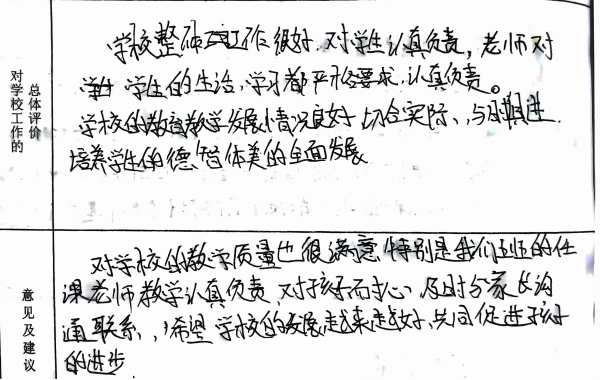 对学校工作的
总体评价
学校整体工作很好,对学生认真负责,老师对
学生的生活,学习都严格要求,认真负责。
学校的教育教学发展情况良好,切合实际、与时俱进
培养学生的德智体美的全面发展
意见及建议
对学校的教学质量也很满意,特别是我们班的任
课老师教学认真负责,对孩子耐心,及时与家长沟
通联系,希望学校的发展越来越好,共同促进孩子
的进步